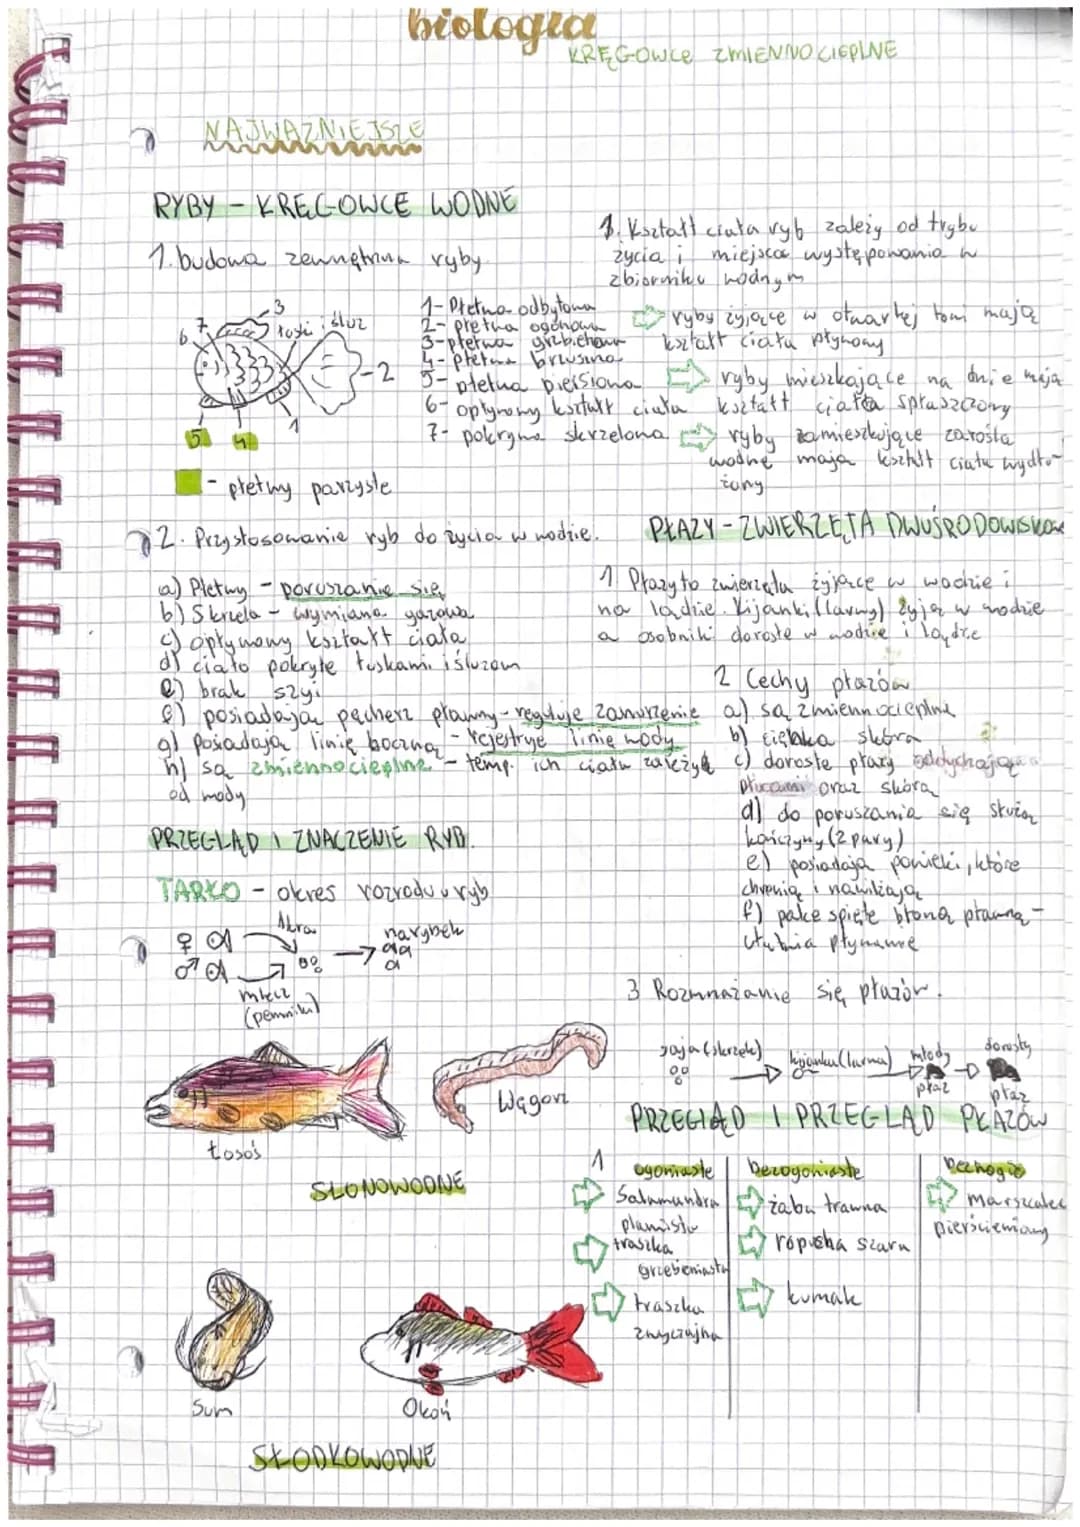 biologia
KRĘGOWCE ZMIENNOCIEPLNE
NAJWAŻNIEJSZE
RYBY - KRĘGOWCE WODNE
1. budowa zewnętrzna ryby
3
7
6
łuski i śluz
2
1
5
4
1- Płetwa odbytowa
2- płetwa ogonowa
3- płetwa grzbietowa
4- płetwa brzuszna
5- płetwa piersiowa
6- opływowy kształt ciała
7- pokrywa skrzelowa
- płetwy parzyste
3. Kształt ciała ryb zależy od trybu
życia i miejsca występowania w
zbiorniku wodnym
ryby żyjące w otwartej toni mają
kształt ciała pływowy
ryby mieszkające na dnie mają
kształt ciała spłaszczony
ryby zamieszkujące zarośla
wodne mają kształt ciała wydłu-
żony
2. Przystosowanie ryb do życia w wodzie.
a) Płetwy - poruszanie się
b) Skrzela - wymiana gazowa
c) opływowy kształt ciała
d) ciało pokryte łuskami i śluzem
e) brak szyi
f) posiadają pęcherz pławny - reguluje zanurzenie
g) posiadają linię boczną - rejestruje linię wody
h) są zmiennocieplne - temp. ich ciała zależy
od wody
PRZEGLĄD I ZNACZENIE RYB.
TARŁO - okres rozrodu u ryb
♀
ikra
narybek
♂
mlecz
(plemniki)
łosoś
Węgorz
SŁONOWODNE
Sum
Okoń
SŁODKOWODNE
PŁAZY - ZWIERZĘTA DWUŚRODOWISKOWE
1. Płazy to zwierzęta żyjące w wodzie i
na lądzie. Kijanki (larwy) żyją w wodzie
a osobniki dorosłe w wodzie i lądzie
2 Cechy płazów
a) są zmiennocieplne
b) cienka skóra
c) dorosłe płazy oddychają
płucami oraz skórą
d) do poruszania się służą
kończyny (2 pary)
e) posiadają powieki, które
chronią i nawilżają
f) palce spięte błoną pławną -
ułatwia pływanie
3 Rozmnażanie się płazów.
jaja (skrzek)
kijanka (larwa)
młody
płaz
dorosły
płaz
PRZEGLĄD I PRZEGLĄD PŁAZÓW
1
ogoniaste
Salamandra
plamista
traszka
grzebieniasta
traszka
zwyczajna
bezogoniaste
żaba trawna
ropucha szara
kumak
beznogie
marszczelec
pierścieniowy